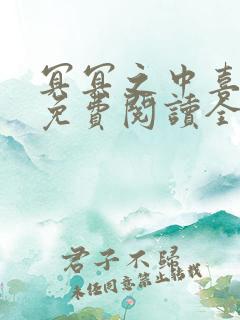 冥冥之中喜
免費閱讀全
君子不歸
未经同意禁止转载